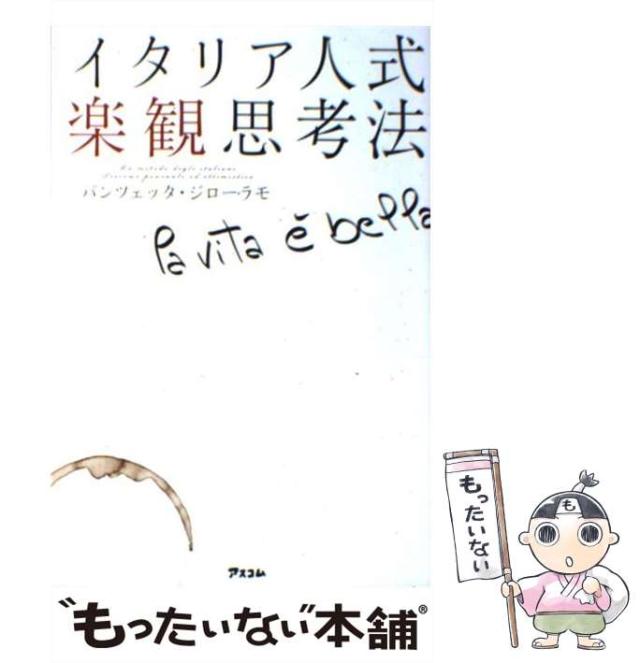 イタリア人式
楽観思考法
パンツェッタ・ジローラモ
la vita è bella
アスコム
"もったいない"本舗®
もったいない
も